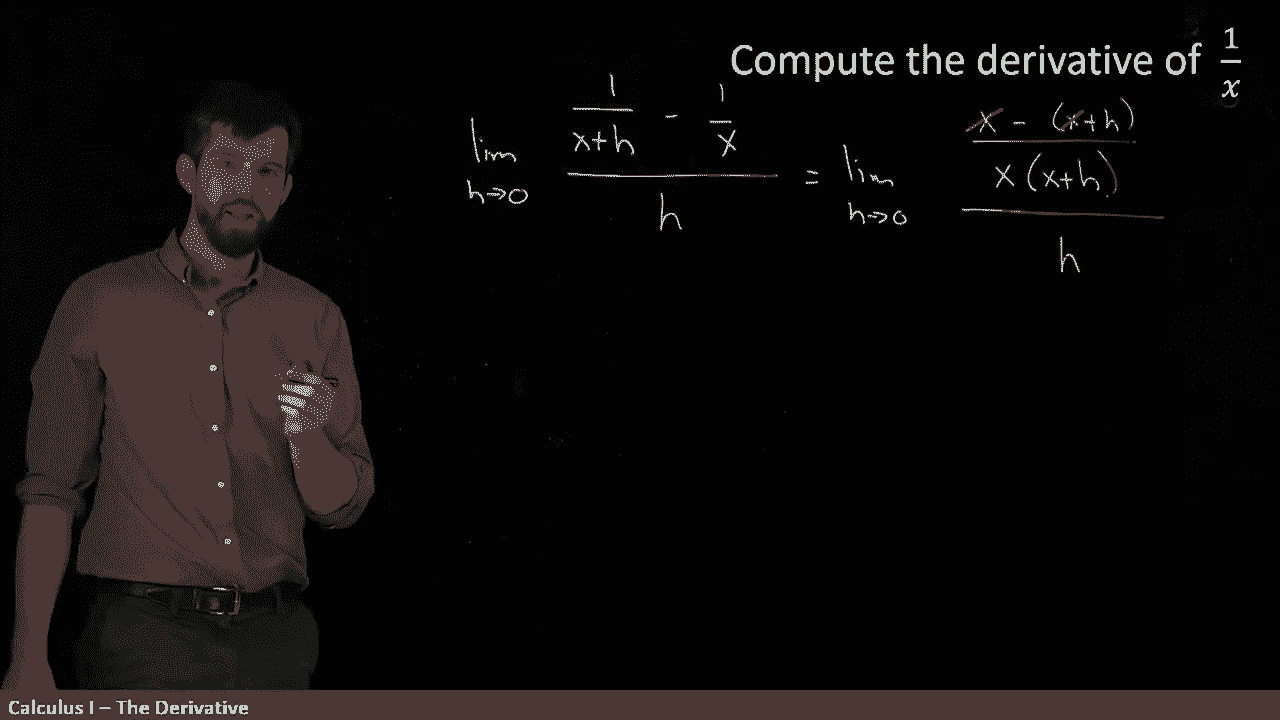 Compute the derivative of 1/x
lim h→0 (1/(x+h) - 1/x)/h = lim h→0 ((x - (x+h))/(x(x+h)))/h
Calculus I – The Derivative